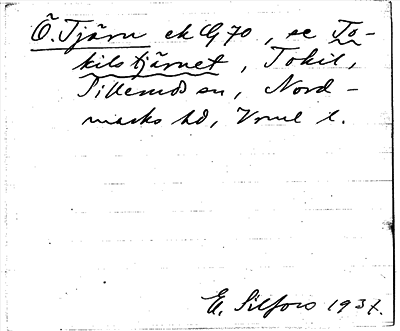 Ö. Tjärn ek G 70, se To-
kilstjärnet, Tokil,
Sillerud sn, Nord-
marks hd, Vrml l.
E. Silfors 1937.